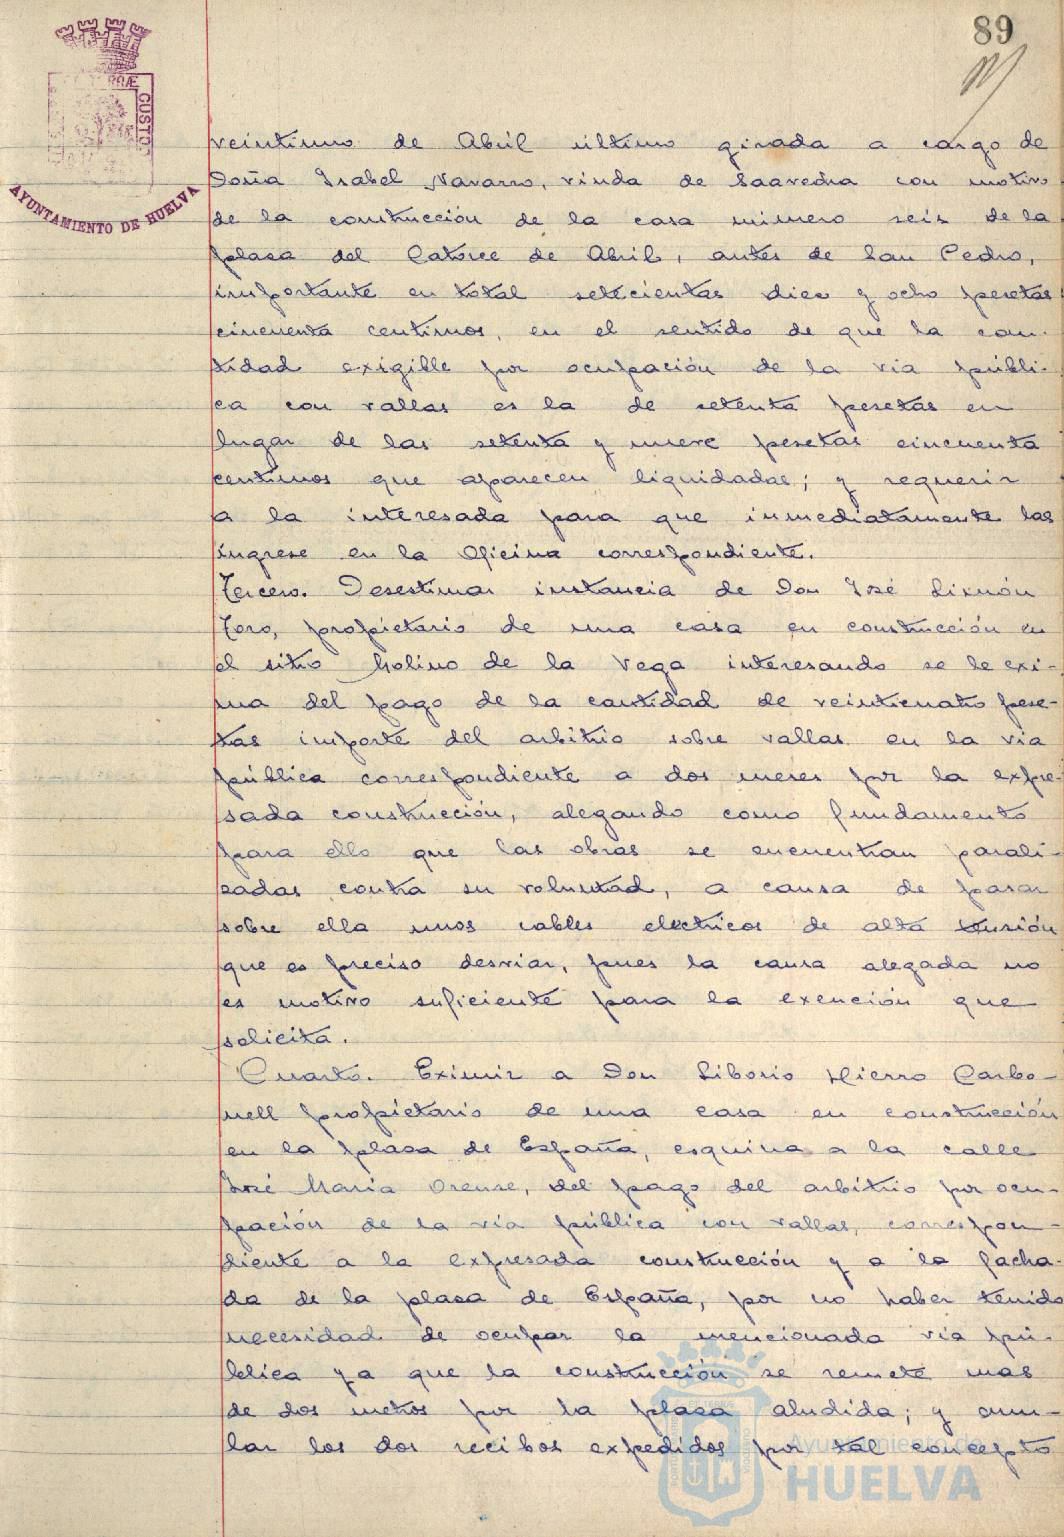 89
AYUNTAMIENTO DE HUELVA
veintiuno de Abril último girada a cargo de
Doña Isabel Navarro, viuda de Saavedra con motivo
de la construcción de la casa número seis de la
plasa del Catorce de Abril, antes de San Pedro,
importante en total setecientas diez y ocho pesetas
cincuenta centimos, en el sentido de que la can-
tidad exigible por ocupación de la via públi-
ca con vallas es la de setenta pesetas en
lugar de las setenta y nueve pesetas cincuenta
centimos que aparecen liquidadas; y requerir
a la interesada para que inmediatamente las
ingrese en la Oficina correspondiente.
Tercero. Desestimar instancia de Don José Limón
Toro, propietario de una casa en construcción en
el sitio Molino de la Vega interesando se le exi-
ma del pago de la cantidad de veinticuatro pese-
tas importe del arbitrio sobre vallas en la via
pública correspondiente a dos meses por la expre-
sada construcción, alegando como fundamento
para ello que las obras se encuentran parali-
zadas contra su voluntad, a causa de pasar
sobre ella unos cables electricos de alta tensión
que es preciso desviar, pues la causa alegada no
es motivo suficiente para la exención que
solicita.
Cuarto. Eximir a Don Liborio Hierro Carbo-
nell propietario de una casa en construcción
en la plasa de España, esquina a la calle
José Maria Orense, del pago del arbitrio por ocu-
pación de la via pública con vallas, correspon-
diente a la expresada construcción y a la facha-
da de la plasa de España, por no haber tenido
necesidad de ocupar la mencionada via pú-
blica ya que la construcción se remete mas
de dos metros por la plasa aludida; y anu-
lar los dos recibos expedidos por tal concepto
Ayuntamiento de
HUELVA